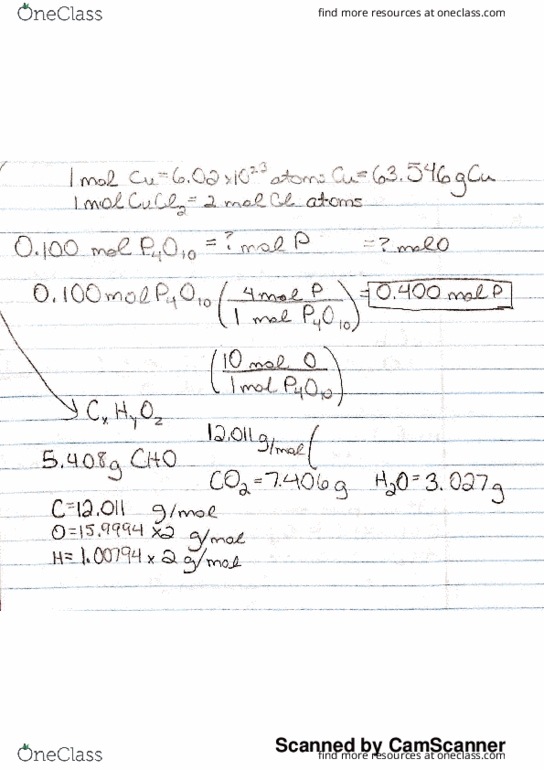 OneClass
find more resources at oneclass.com
1 mol Cu = 6.02 x 10²³ atoms Cu = 63.546 g Cu
1 mol CuCl₂ = 2 mol Cl atoms
0.100 mol P₄O₁₀ = ? mol P = ? mol O
0.100 mol P₄O₁₀ (4 mol P / 1 mol P₄O₁₀) = 0.400 mol P
(10 mol O / 1 mol P₄O₁₀)
CₓHᵧO₂
12.011 g/mol (
5.408g CHO
CO₂ = 7.406g H₂O = 3.027g
C = 12.011 g/mol
O = 15.9994 x 2 g/mol
H = 1.00794 x 2 g/mol
Scanned by CamScanner
OneClass
find more resources at oneclass.com